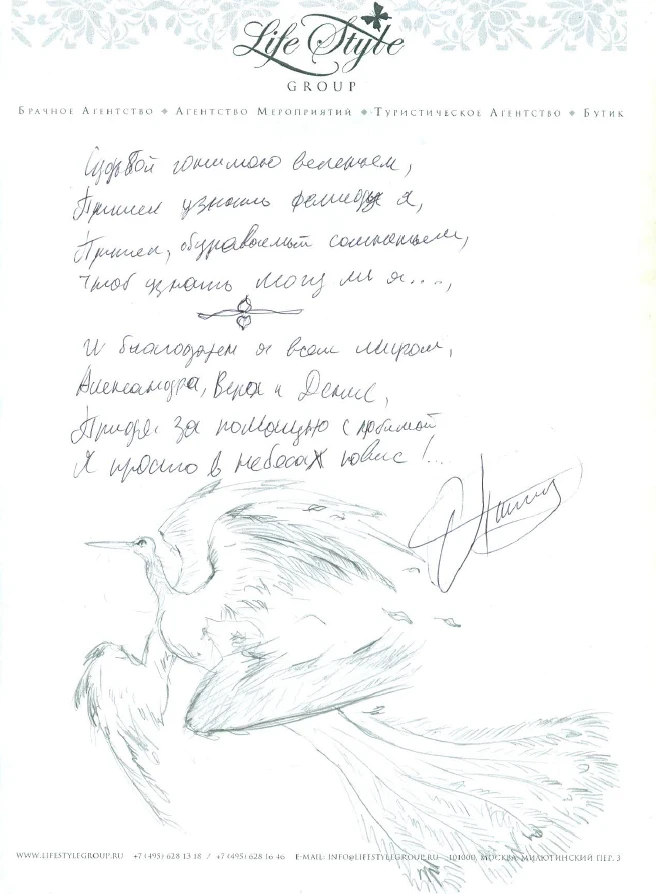 Life Style
GROUP
Брачное Агентство ◆ Агентство Мероприятий ◆ Туристическое Агентство ◆ Бутик
Судьбой гонимого веленьем,
Пришел узнать я,
Пришел, обуреваемый сомненьем,
Чтоб узнать могу ли я...,
И благодарен я всем миром,
Александра, Вера и Денис,
Придя за помощью с любимой
Я просто в небесах повис!...
WWW.LIFESTYLEGROUP.RU +7 (495) 628 13 18 / +7 (495) 628 16 46 E-MAIL: INFO@LIFESTYLEGROUP.RU 101000, МОСКВА МИЛЮТИНСКИЙ ПЕР. 3